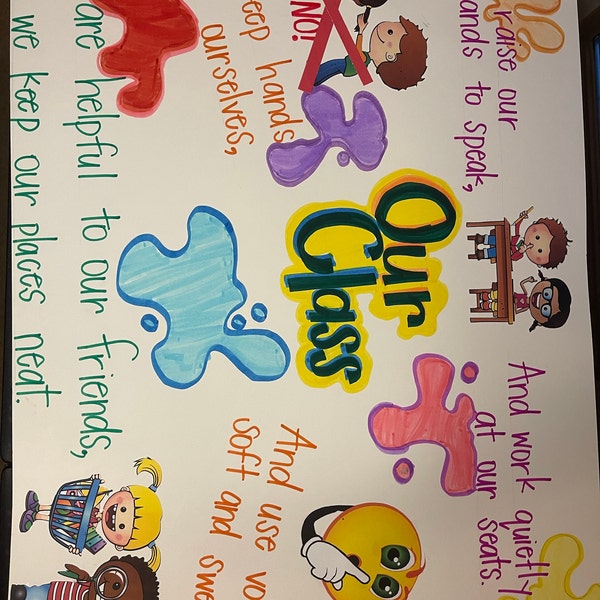 Our
Class
raise our
hands to speak,
And work quietly
at our
seats.
NO!
keep hands
ourselves,
And use
soft and
are helpful to our friends,
we keep our places neat.